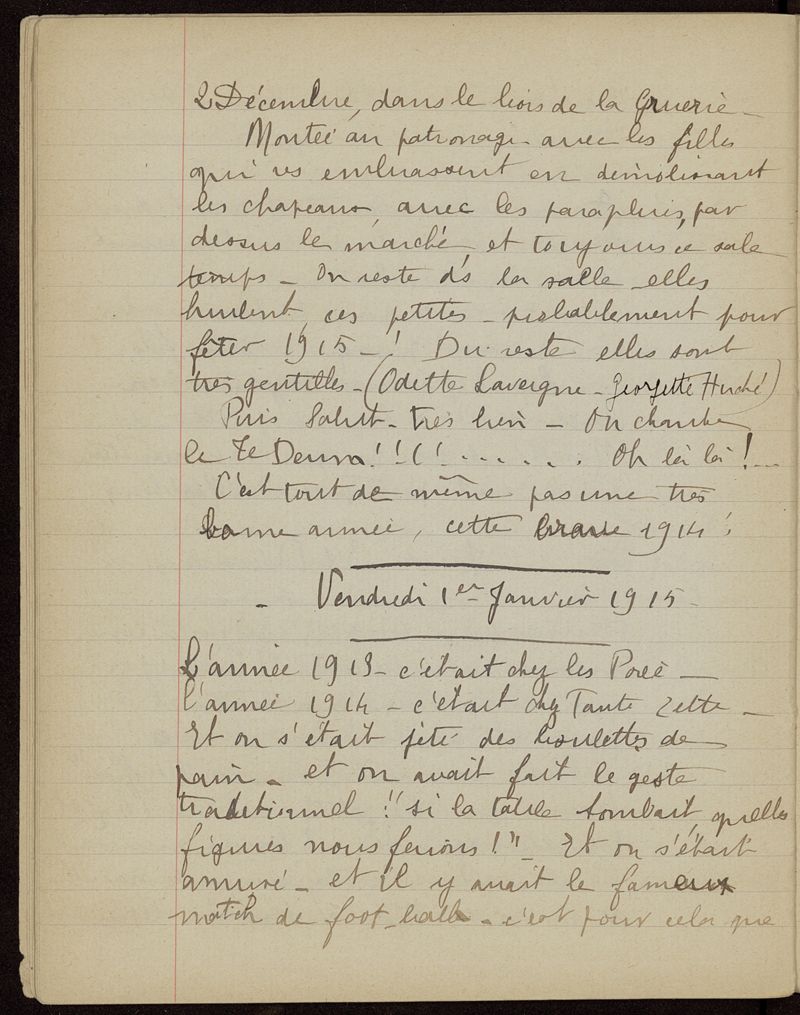 2 Décembre, dans le bois de la Gruerie –
Montée au patronage avec les filles
qui vs embrassent en démolissant
les chapeaux, avec les parapluies, par
dessus le marché, et toujours ce sale
temps – On reste ds la salle – elles
hurlent, ces petites – probablement pour
fêter 1915 – ! Du reste elles sont
très gentilles – (Odette Lavergne – Georgette Huché)
Puis Salut – très bien – On chante
le Te Deum ! ! ! ! . . . . . . Oh là là ! ...
C'est tout de même pas une très
bonne année, cette brave 1914 !
– Vendredi 1er Janvier 1915 –
L'année 1913 – c'était chez les Porée –
l'année 1914 – c'était chez Tante Zette –
Et on s'était jeté des boulettes de
pain – et on avait fait le geste
traditionnel ! "si la table tombait, quelles
figures nous ferions !" – Et on s'était
amusé – et il y avait le fameux
match de foot-ball – c'est pour cela que